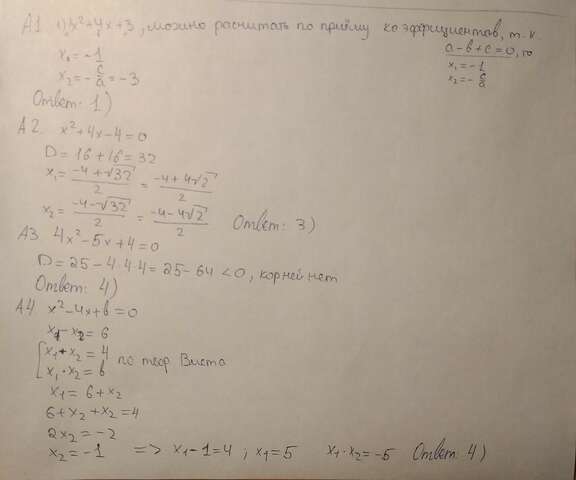 A1 1) x²+4x+3, можно расчитать по приёму коэффициентов, т.к.
a-b+c=0, то
x₁ = -1
x₁ = -1
x₂ = -c/a = -3
x₂ = -c/a
Ответ: 1)
A2. x²+4x-4=0
D = 16+16 = 32
x₁ = (-4+√32)/2 = (-4+4√2)/2
x₂ = (-4-√32)/2 = (-4-4√2)/2 Ответ: 3)
A3 4x²-5x+4=0
D = 25-4·4·4 = 25-64 <0, корней нет
Ответ: 4)
A4 x²-4x+b=0
x₁-x₂ = 6
x₁+x₂ = 4
x₁·x₂ = b по теор Виета
x₁ = 6+x₂
6+x₂+x₂=4
2x₂=-2
x₂=-1 => x₁-1=4; x₁=5 x₁·x₂=-5 Ответ: 4)